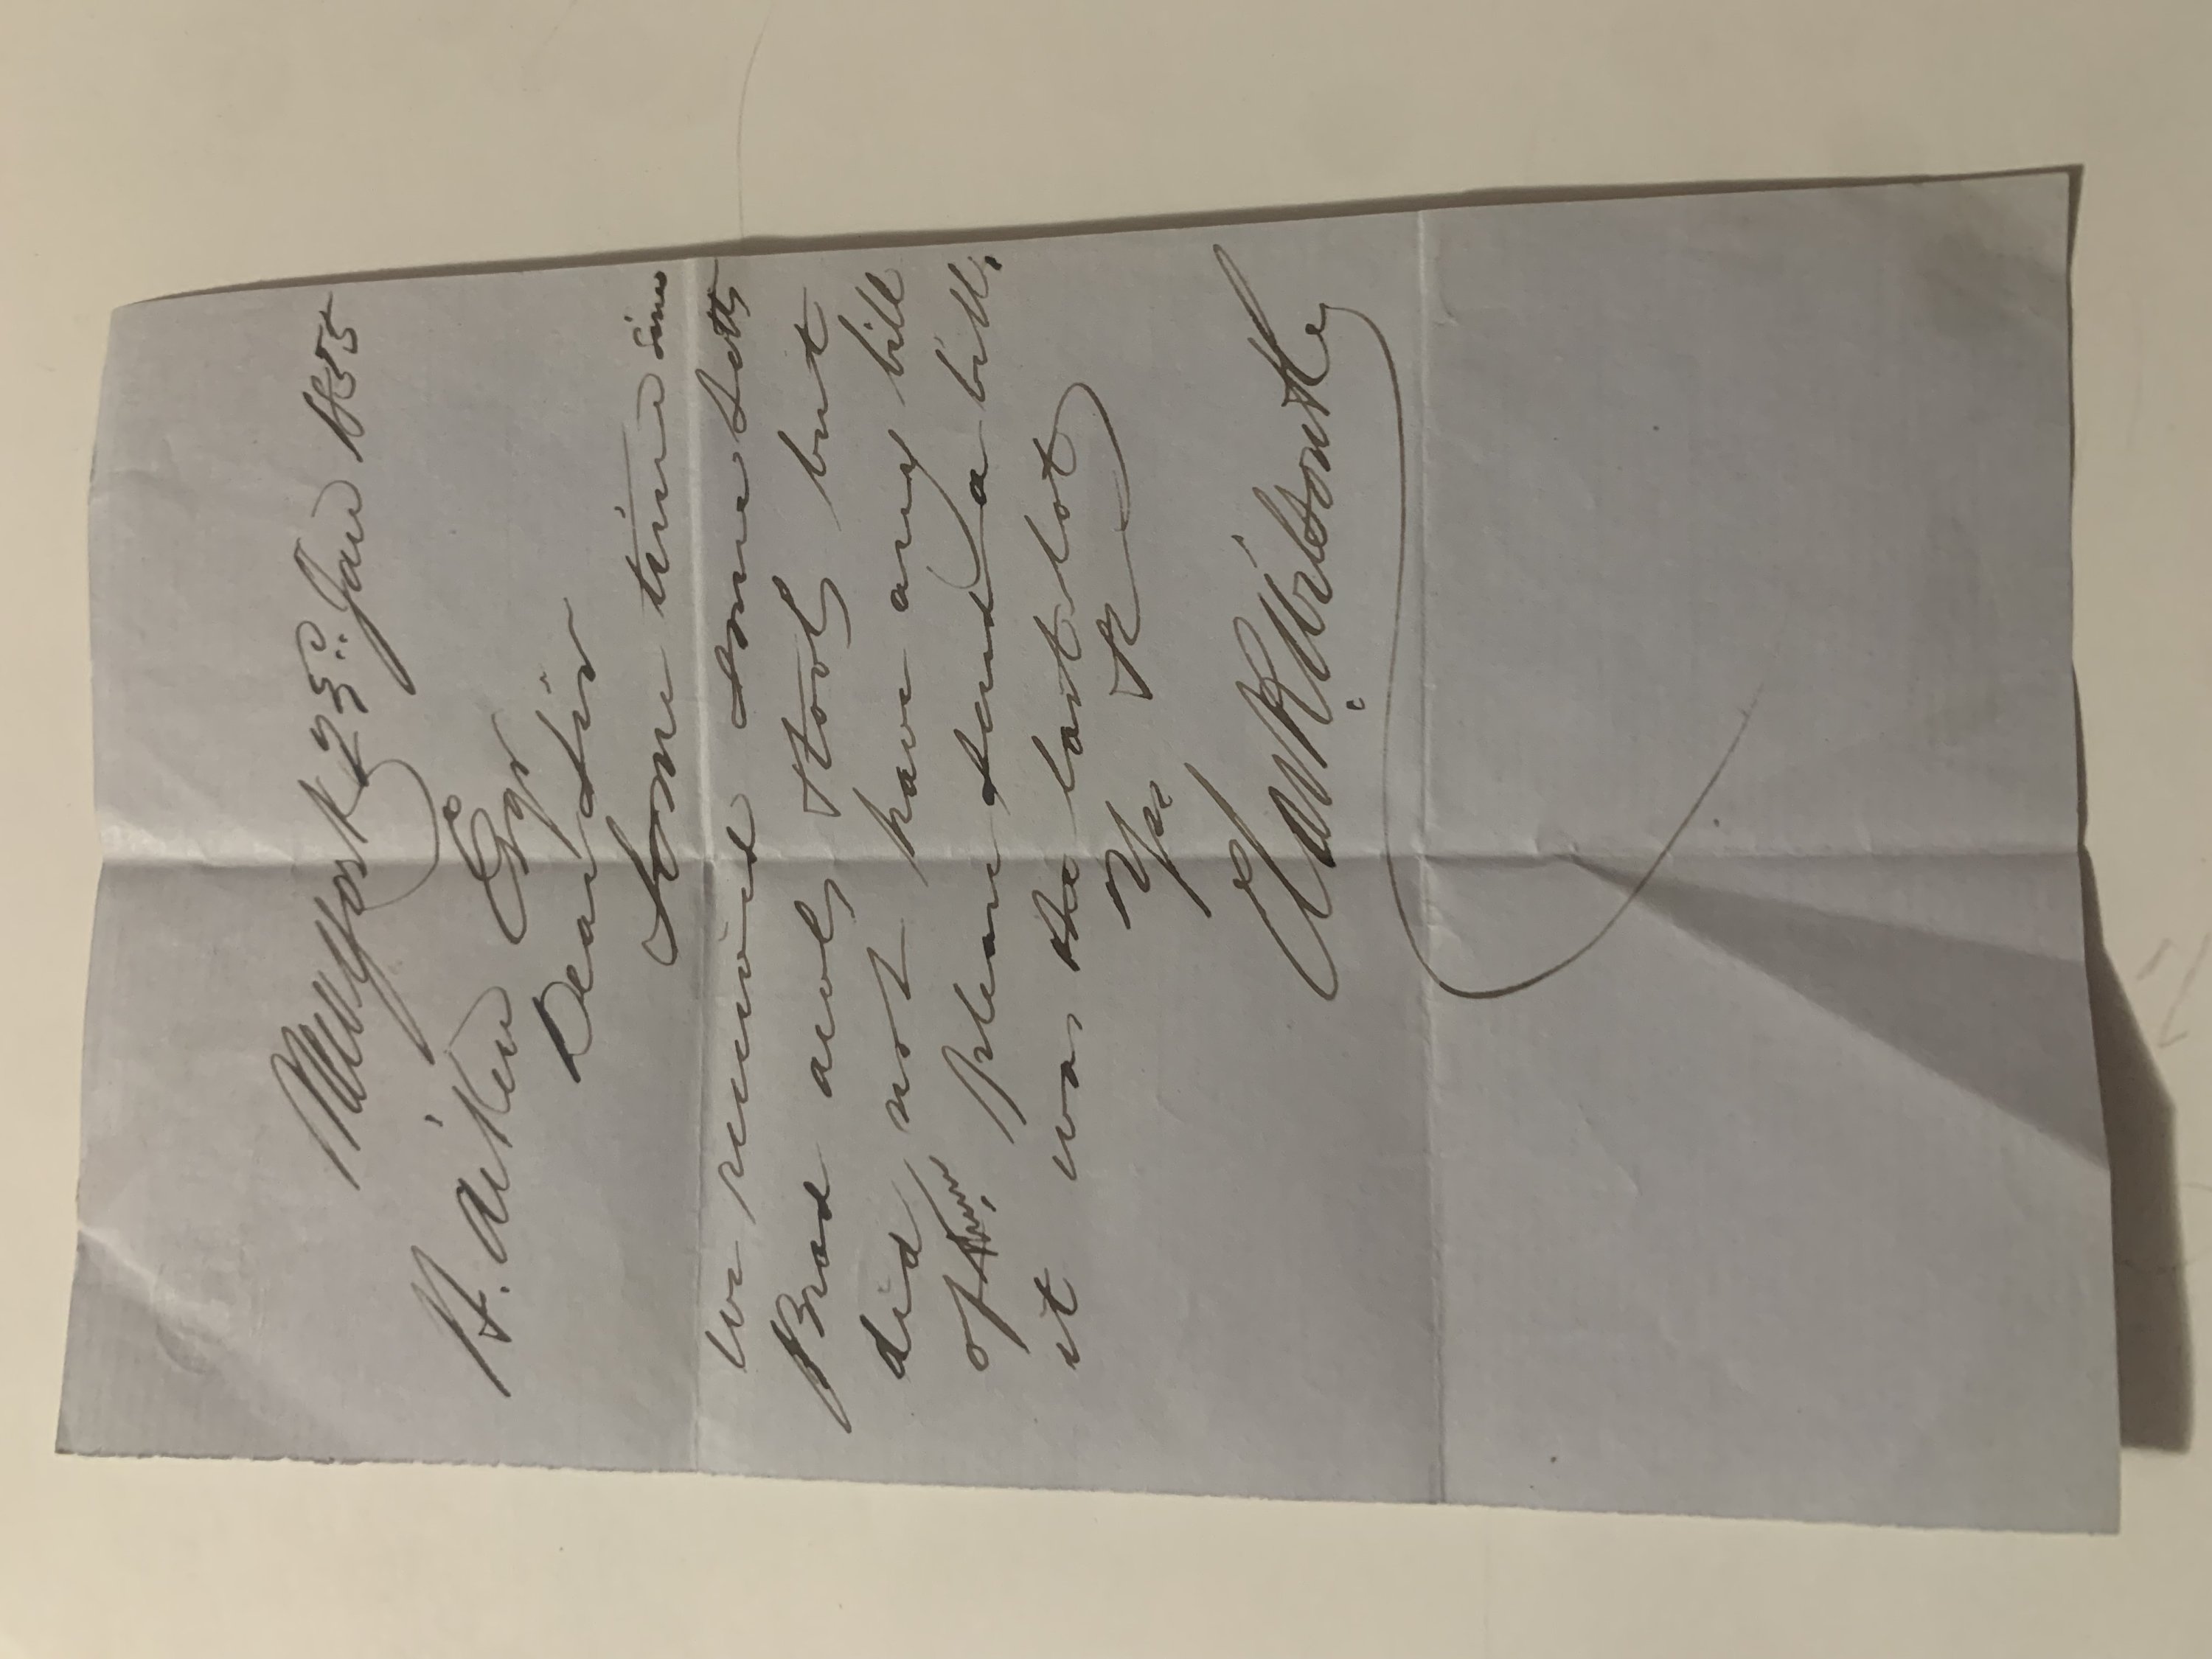 New York 23d. Jan 1855
H. Aiken Esqr
Dear Sir
Some time since
we received some setts
Brad awls & tools but
did not have any bill
of please send a bill.
it was the last lot
Yrs &c